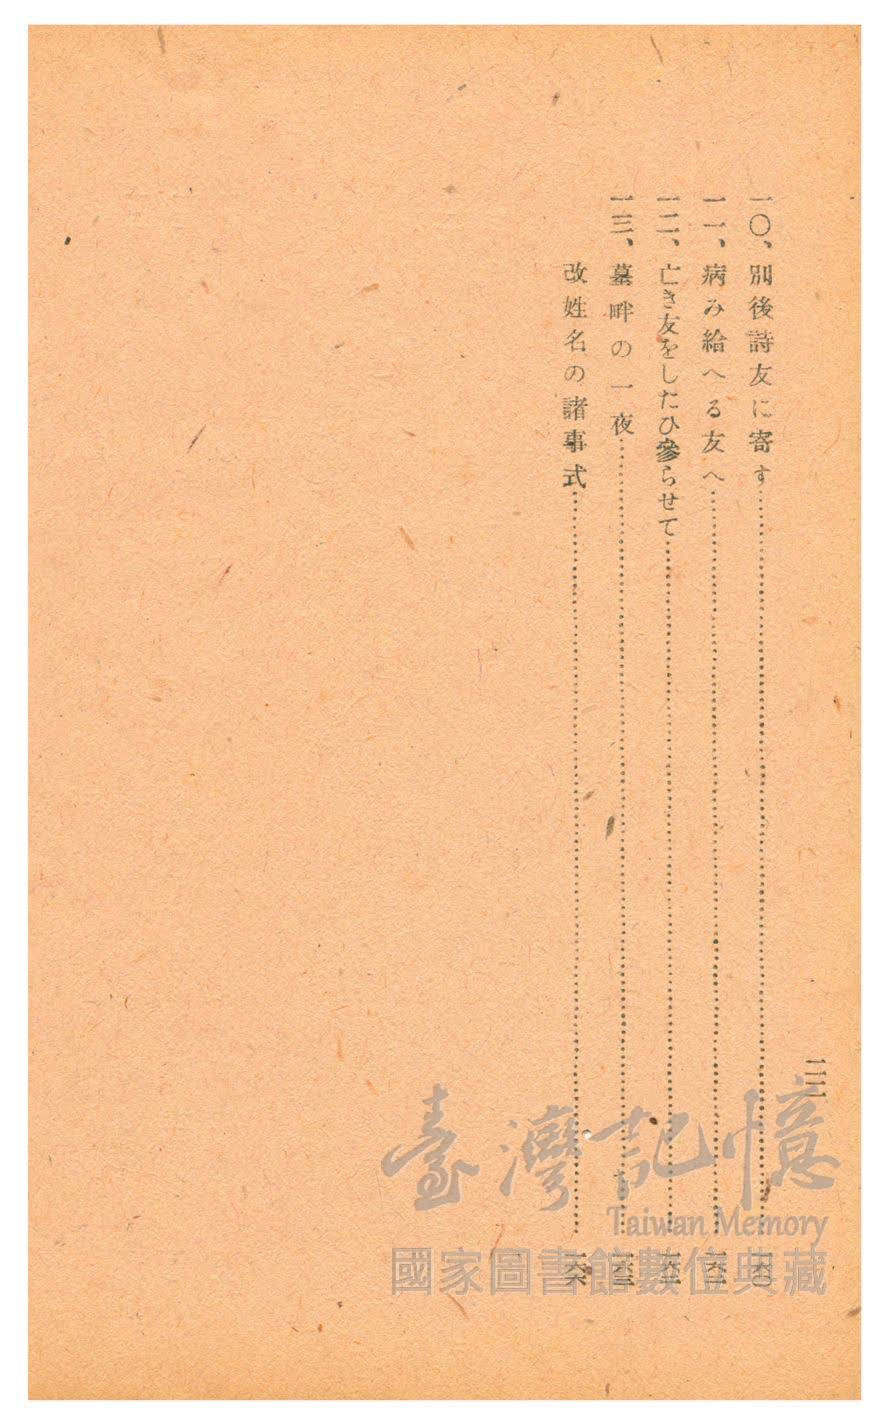 一〇、別後詩友に寄す…………一六〇
一一、病み給へる友へ…………
一二、亡き友をしたひ參らせて…………
一三、墓畔の一夜…………
改姓名の諸事式…………一六六
臺灣記憶
Taiwan Memory
國家圖書館數位典藏